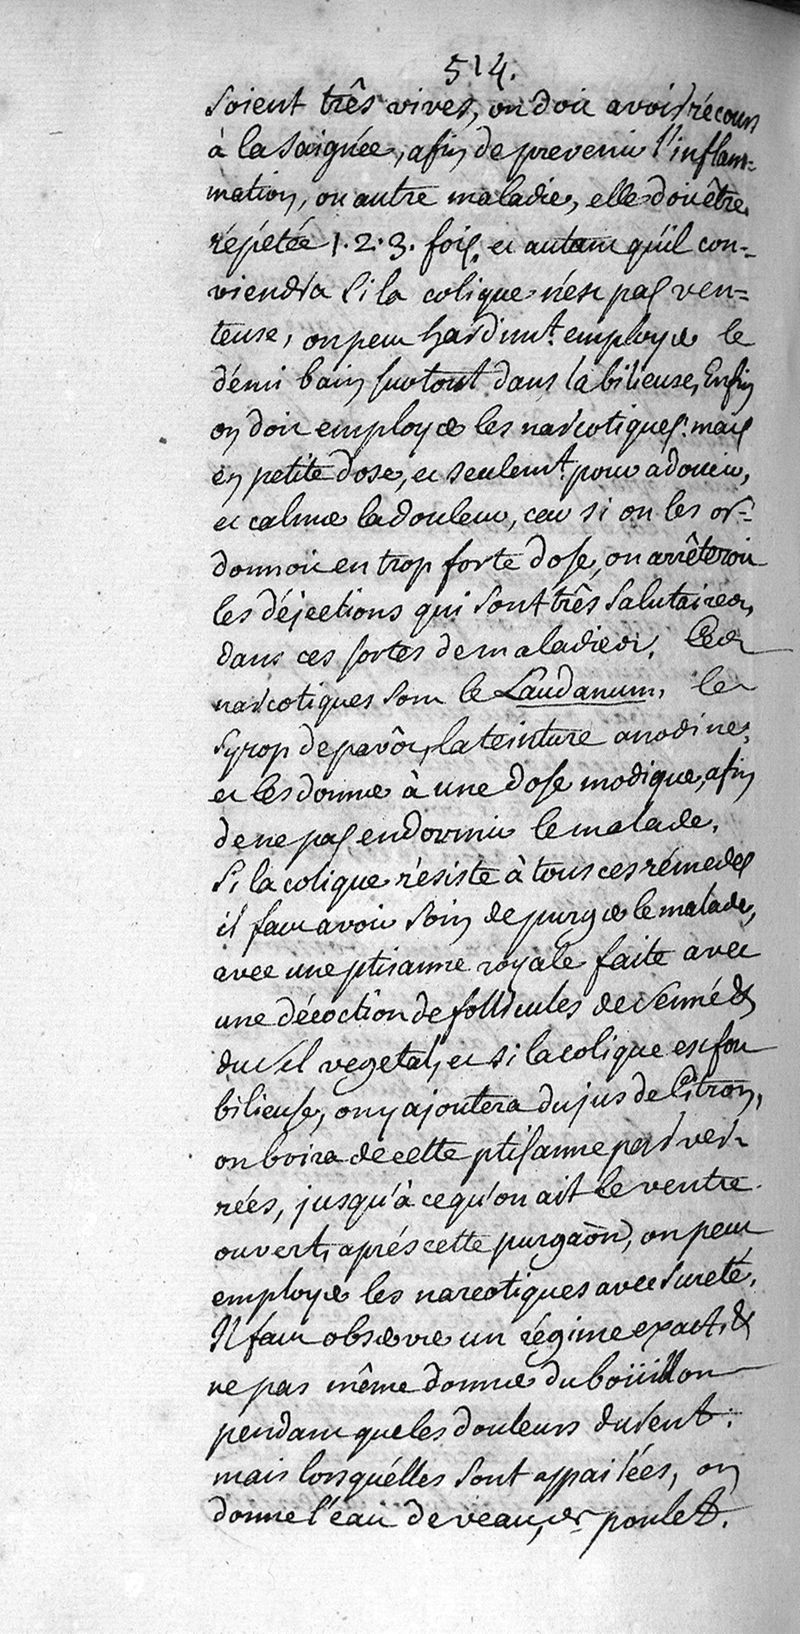 514.
soient três vives, on doit avoir récours
à la saignée, afin de prevenir l'inflam=
mation, ou autre maladie, elle doit être
répétée 1. 2. 3. fois, et autant qu'il con=
viendra si la colique n'est pas ven=
teuse, on peut hardimt. employer le
démi bain surtout dans la bilieuse, Enfin
on doit employer les narcotiques. mais
en petite dose, et seulemt. pour adoucir,
et calmer la douleur, car si on les or=
donnoit en trop forte dose, on arrêteroit
les déjections qui sont três salutaires,
dans ces sortes de maladies. Les
narcotiques sont le Laudanum, le
syrop de pavôt, la teinture anodine,
et les donner à une dose modique, afin
de ne pas endormir le malade.
Si la colique résiste à tous ces rémedes
il faut avoir soin de purger le malade,
avec une ptisanne royale faite avec
une décoction de follicules de senné &
du sel vegetal, et si la colique est fort
bilieuse, on y ajoutera du jus de Citron,
on boira de cette ptisanne par ver=
rées, jusqu'à ce qu'on ait le ventre
ouvert, aprés cette purgaõn, on peut
employer les narcotiques avec sureté.
Il faut observer un régime exact, &
ne pas même donner du boüillon
pendant que les douleurs durent:
mais lorsqu'élles sont appaisées, on
donne l'eau de veau, et poulet.